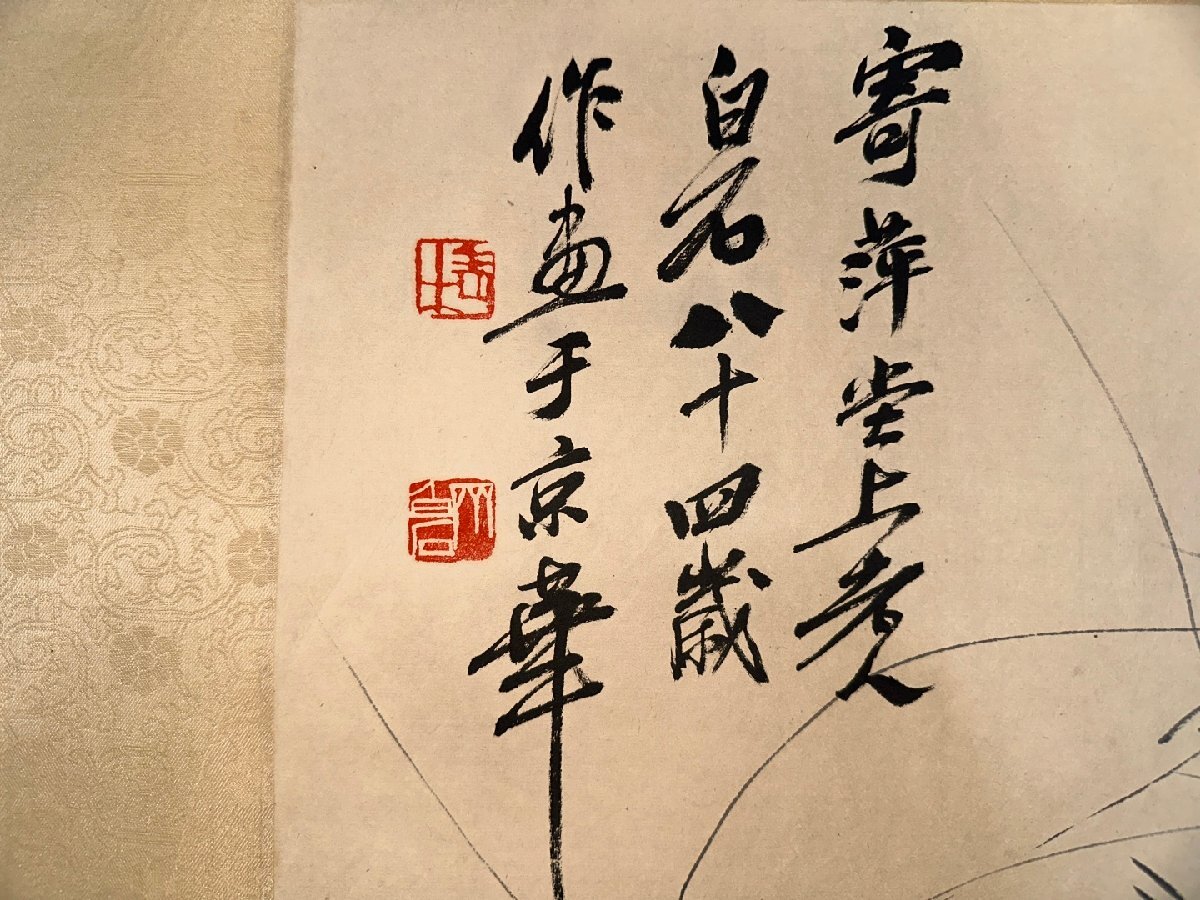 寄萍堂上老人
白石八十四歲
作畫于京華